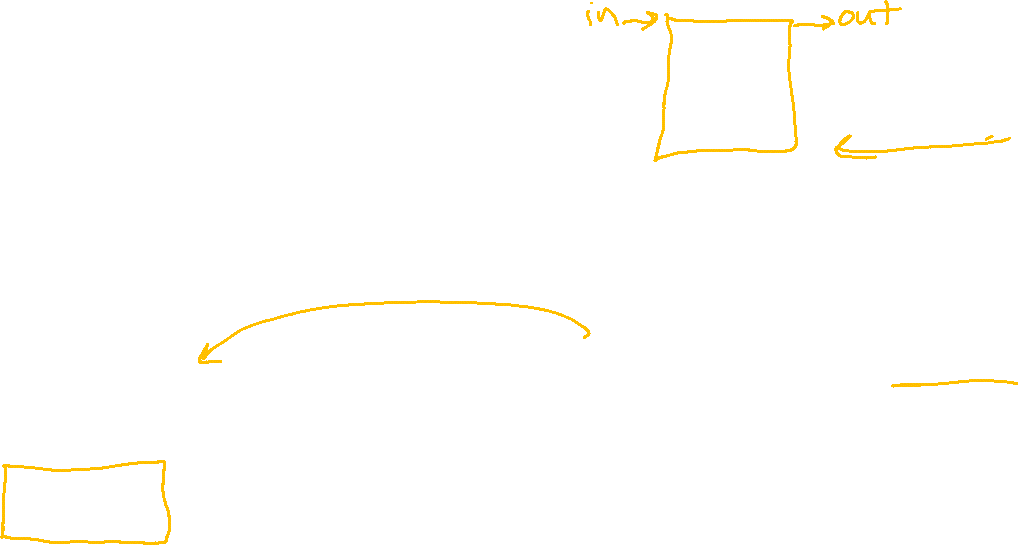 in out